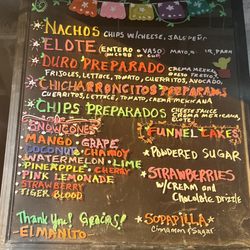 NACHOS CHIPS W/CHEESE, JALEPEÑO
ELOTE (ENTERO • VASO) MAYO,
DURO PREPARADO CREMA MEXICANA
FRIJOLES, LETTUCE, TOMATO, CUERRITOS, AVOCADO,
CHICHARRONCITOS PREPARADOS
CUERRITOS, LETTUCE, TOMATO, CREMA MEXICANA
CHIPS PREPARADOS CHEETO
CREMA MEXICANA
ELOTE
SNOWCONES
MANGO • GRAPE
COCONUT • CHAMOY
WATERMELON • LIME
PINEAPPLE • CHERRY
PINK LEMONADE
STRAWBERRY
TIGER BLOOD
FUNNEL CAKES
* POWDERED SUGAR
* STRAWBERRIES
W/CREAM AND
Chocolate Drizzle
* SOPAPILLA *
Cinnamon & Sugar
Thank You! Gracias!
EL MANITO